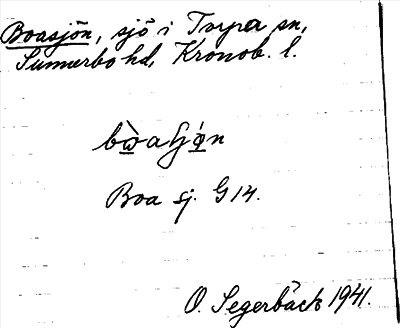 Boasjön, sjö i Torpa sn,
Sunnerbo hd, Kronob. l.
Boa sj. G 14.
O. Segerbäck 1941.